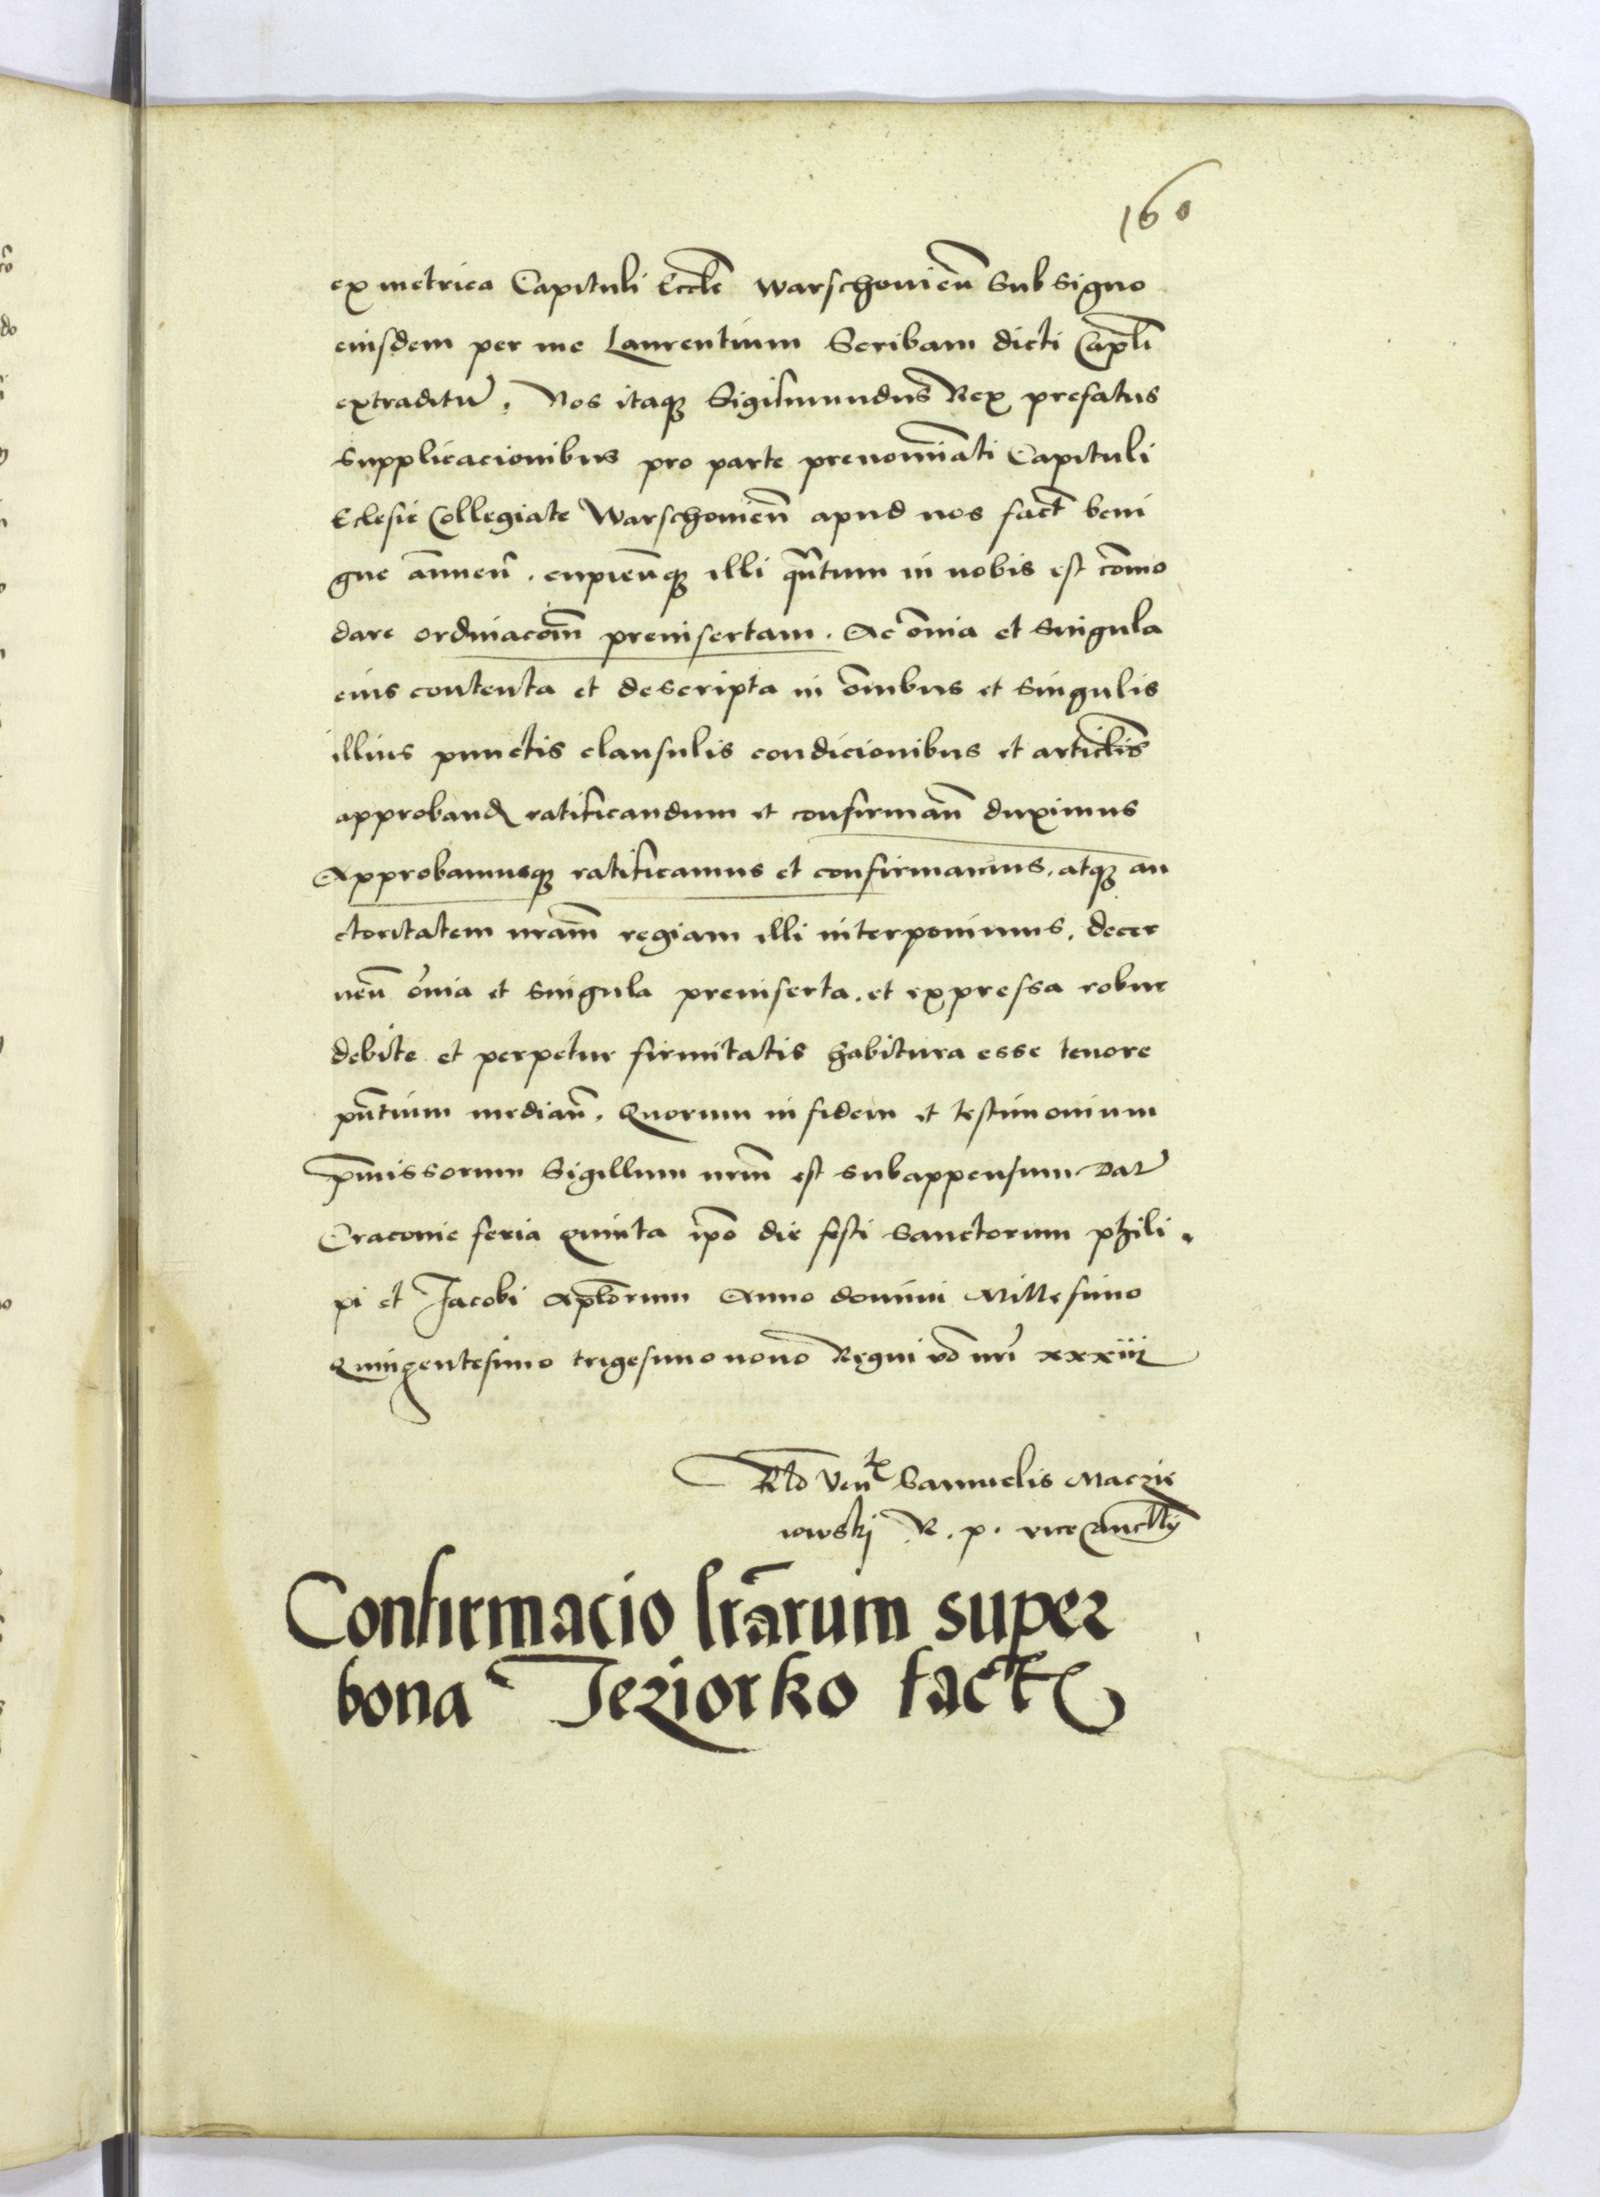 160
ex metrica Capituli Eccle͞ Warschovien͞ Sub signo
eiusdem per me Laurentium Scribam dicti Capl͞i
extraditur̃. Nos itaqꝫ Sigismundus Rex prefatus
supplicacionibus pro parte prenomi͞ati Capituli
Eclesie Collegiate Warschovien͞ apud nos fact͞ beni
gne annuen͞. cupien͞qꝫ illi qua͞tum in nobis est co͞mo
dare ordinaco͞m preinsertam. Ac o͞mia et singula
eius contenta et descripta in o͞mibus et singulis
illius punctis clausulis condicionibus et articl͞is
approband͞ ratificandum et confirman͞ duximus
Approbamusqꝫ ratificamus et confirmamus. atqꝫ au
ctoritatem nr͞am regiam illi interponimus. decer
nen͞ o͞mia et singula preinserta. et expressa robur
debite et perpetue firmitatis habitura esse tenore
pn͞tium median͞. Quorum in fidem et testimonium
p͞missorum Sigillum nr͞m est subappensum Dat̃
Cracovie feria quinta ip͞o die festi Sanctorum phili
pi et Jacobi Apl͞orum Anno domini Millesimo
Quingentesimo trigesimo nono Regni v͞o nr͞i xxxiii
Rl͞o Ven͞ Samuelis Maczie
iowskj R. p. viceCancll͞ij
Confirmacio lr͞arum super
bona Jeziorko fact͞